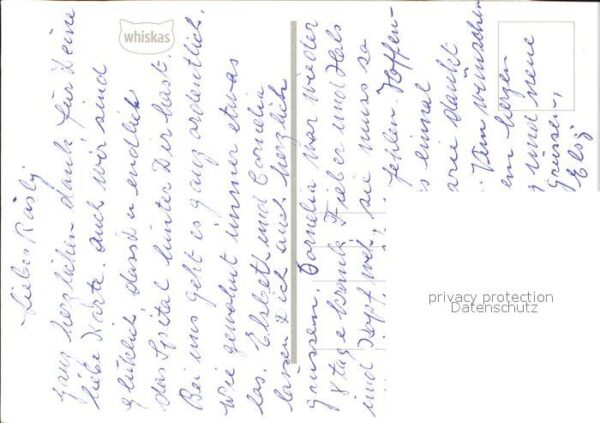 whiskas
Liebes Rösly
ganz herzlichen dank für Deine
liebe Karte. auch wir sind
glüklich dass Du endlich
das Spital hinter Dir hast.
Bei uns geht es ganz ordentlich.
Wie gewohnt immer etwas
los. Elsbeth und Cornelia
lassen Dich auch herzlich
grüssen. Cornelia war wieder
8 tage krank Fieber und Hals
und Kopf weh, sie muss so
fehlen. Hoffen-
es einmal
arie dankt
Wir wünschen
em herzen
und meine
Grüssen,
Elsy
privacy protection
Datenschutz